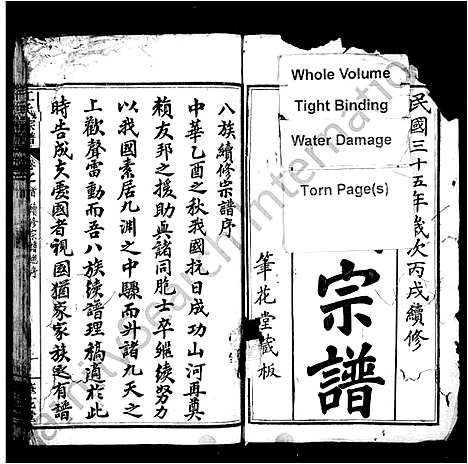 Whole Volume
Tight Binding
Water Damage
Torn Page(s)
民國三十五年歲次丙戌續修
宗譜
筆花堂藏板
八族續修宗譜序
中華乙酉之秋我國抗日成功山河再奠
賴友邦之援助與諸同胞士卒繼續努力
以我國素居九淵之中驟而升諸九天之
上歡聲雷動而吾八族續譜理稿適於此
時告成夫愛國者視國猶家家族之有譜